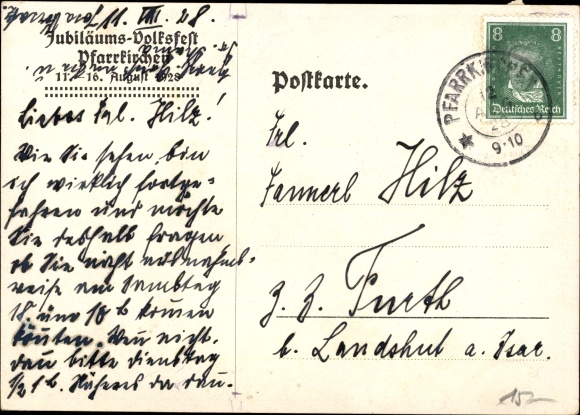 11. VIII. 28.
Jubiläums-Volksfest
Pfarrkirchen
11.-16. August 1928
Liebes Frl. Hilz!
Wie Sie sehen bin
ich wirklich fortge-
fahren und möchte
Sie deshalb fragen
ob Sie nicht ausnahms-
weise am Samstag
18. um 10 h kommen
könnten. Wenn nicht,
dann bitte Dienstag
1/2 1 h. Näheres da dann.
Postkarte.
Frl.
Hilz
z. Z. Furth
b. Landshut a. Isar.
8 8
Deutsches Reich
PFARRKIRCHEN
12
28
9-10
15-